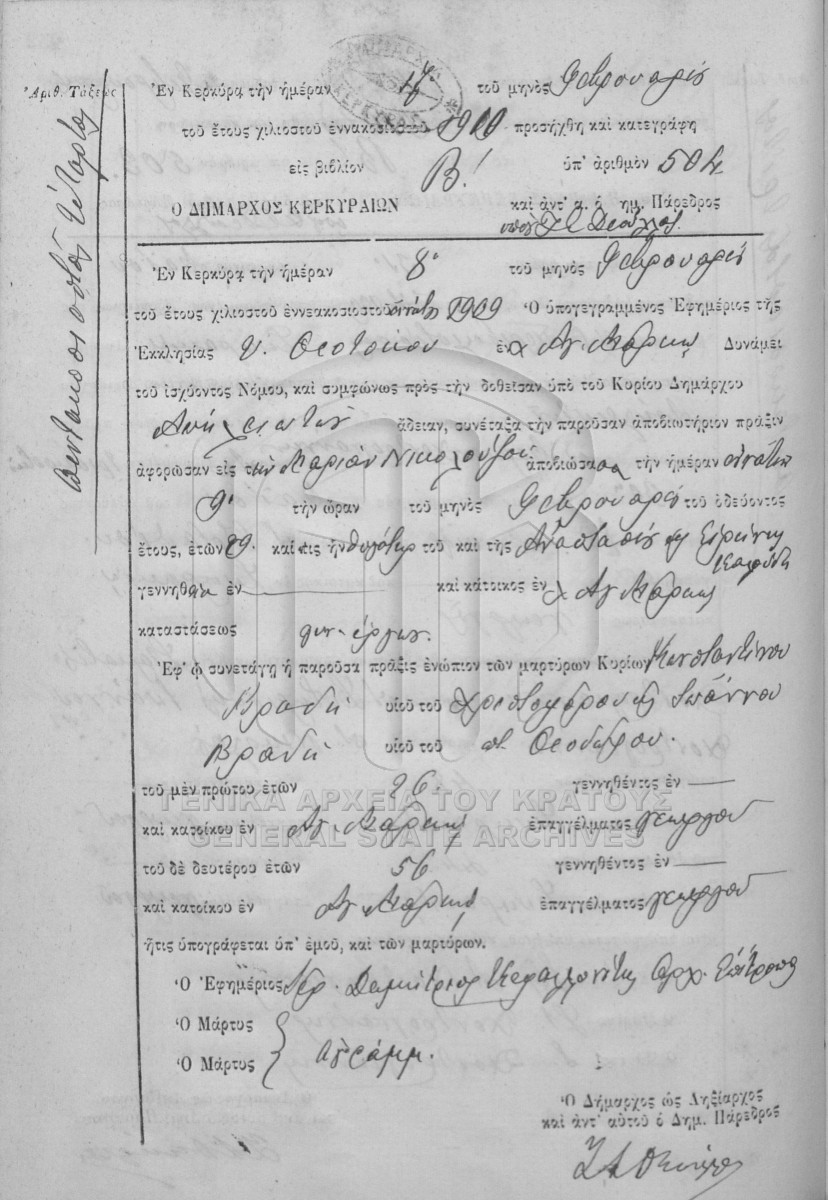 Ἀριθ. Τάξεως
Πεντακόσια
Ἐν Κερκύρᾳ τὴν ἡμέραν 17 τοῦ μηνὸς Φεβρουαρίου
τοῦ ἔτους χιλιοστοῦ ἐννακοσιοστοῦ 1910 προσήχθη καὶ κατεγράφη
εἰς βιβλίον Β! ὑπ' ἀριθμὸν 504
Ο ΔΗΜΑΡΧΟΣ ΚΕΡΚΥΡΑΙΩΝ καὶ ἀντ' α. ὁ δημ. Πάρεδρος
Ἐν Κερκύρᾳ τὴν ἡμέραν 8 τοῦ μηνὸς Φεβρουαρίου
τοῦ ἔτους χιλιοστοῦ ἐννεακοσιοστοῦ ἐννάτου 1909 Ὁ ὑπογεγραμμένος Ἐφημέριος τῆς
Ἐκκλησίας Υ. Θεοτόκου ἐν Ἁγ. Μάρκῳ Δυνάμει
τοῦ ἰσχύοντος Νόμου, καὶ συμφώνως πρὸς τὴν δοθεῖσαν ὑπὸ τοῦ Κυρίου Δημάρχου
ἄδειαν, συνέταξα τὴν παροῦσαν ἀποβιωτήριον πρᾶξιν
ἀφορῶσαν εἰς τὴν Μαρίαν Νικολούζου ἀποβιώσασα τὴν ἡμέραν ἐννάτην
9 τὴν ὥραν τοῦ μηνὸς Φεβρουαρίου τοῦ ὁδεύοντος
ἔτους, ἐτῶν 29. καὶ τις ἦν θυγάτηρ τοῦ καὶ τῆς Ἀναστασίου καὶ Εἰρήνης
γεννηθεῖσα ἐν — καὶ κάτοικος ἐν Ἁγ. Μάρκῳ
καταστάσεως
Ἐφ' ᾧ συνετάγη ἡ παροῦσα πρᾶξις ἐνώπιον τῶν μαρτύρων Κυρίων Κωνσταντίνου
Βραδῆ υἱοῦ τοῦ Χριστοφόρου καὶ Ἰωάννου
Βραδῆ υἱοῦ τοῦ π. Θεοδώρου.
τοῦ μὲν πρώτου ἐτῶν 26 γεννηθέντος ἐν —
καὶ κατοίκου ἐν Ἁγ. Μάρκῳ ἐπαγγέλματος γεωργοῦ
τοῦ δὲ δευτέρου ἐτῶν 56 γεννηθέντος ἐν —
καὶ κατοίκου ἐν Ἁγ. Μάρκῳ ἐπαγγέλματος γεωργοῦ
ἥτις ὑπογράφεται ὑπ' ἐμοῦ, καὶ τῶν μαρτύρων.
Ὁ Ἐφημέριος Ἱερ. Δημήτριος Κεφαλλωνίτης
Ὁ Μάρτυς
Ὁ Μάρτυς ἀγράμμ.
Ὁ Δήμαρχος ὡς Ληξίαρχος
καὶ ἀντ' αὐτοῦ ὁ Δημ. Πάρεδρος
ΓΕΝΙΚΑ ΑΡΧΕΙΑ ΤΟΥ ΚΡΑΤΟΥΣ
GENERAL STATE ARCHIVES